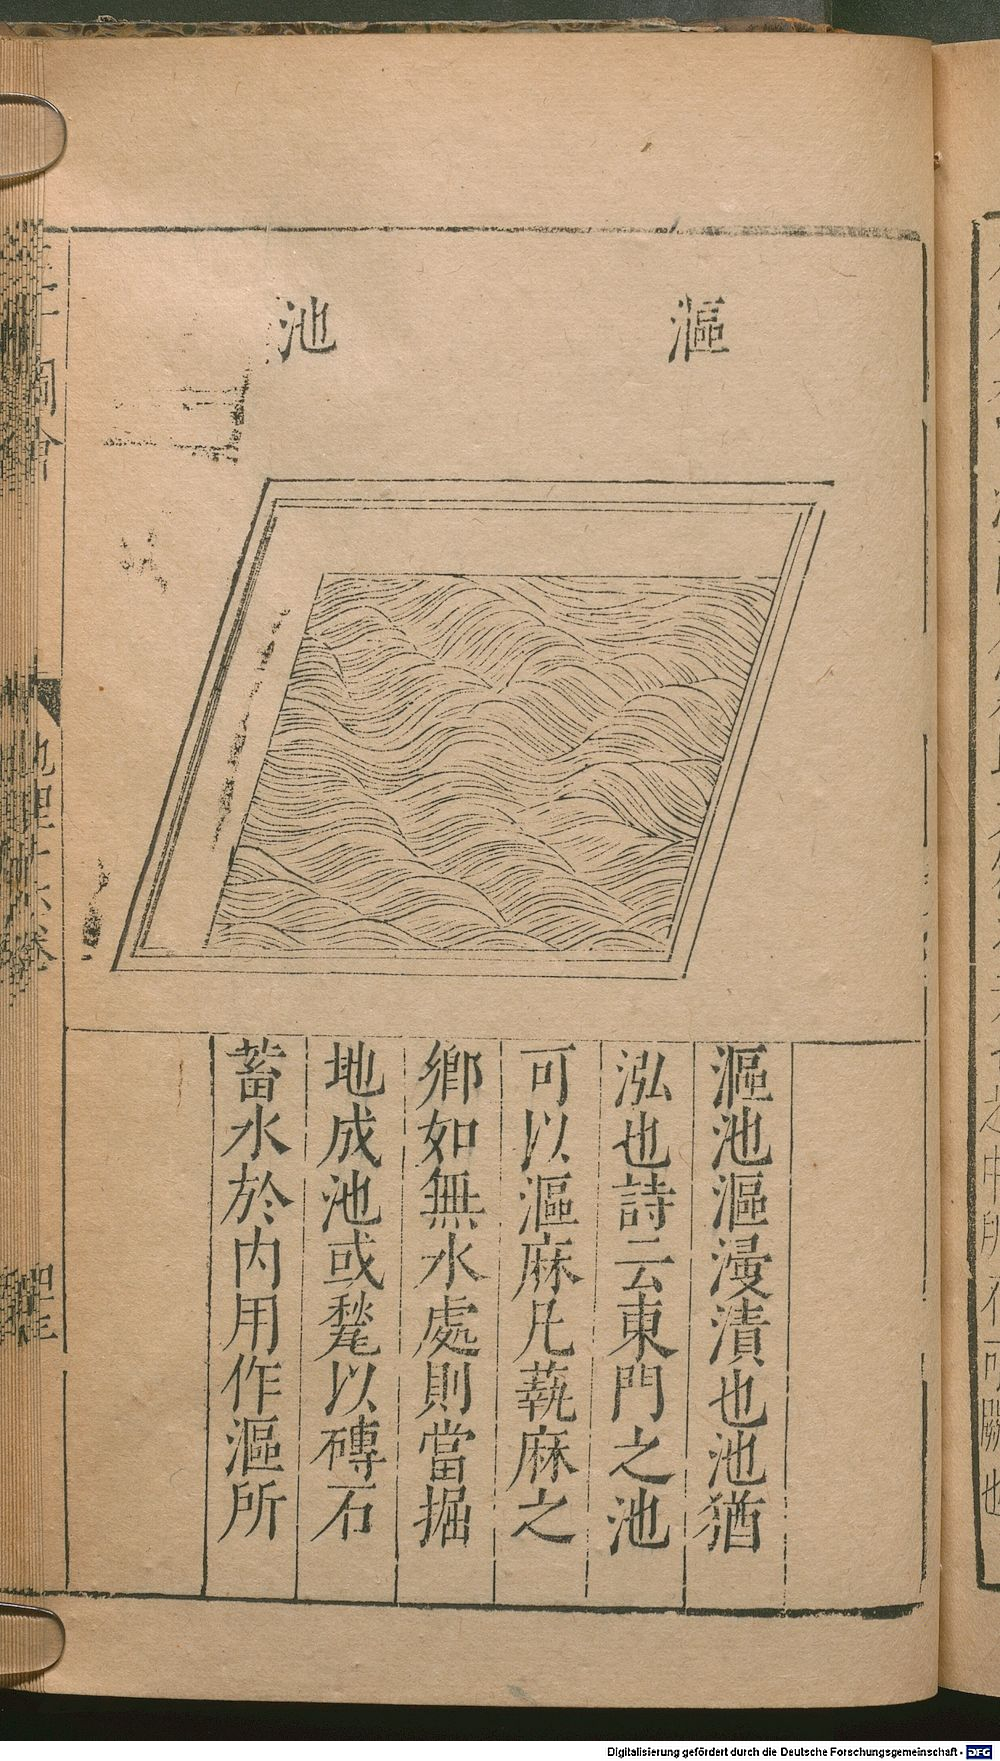 漚池
漚池漚浸漬也池猶
泓也詩云東門之池
可以漚麻凡蓺麻之
鄉如無水處則當掘
地成池或甃以磚石
蓄水於内用作漚所
圖會
地理十六卷
Digitalisierung gefördert durch die Deutsche Forschungsgemeinschaft - DFG